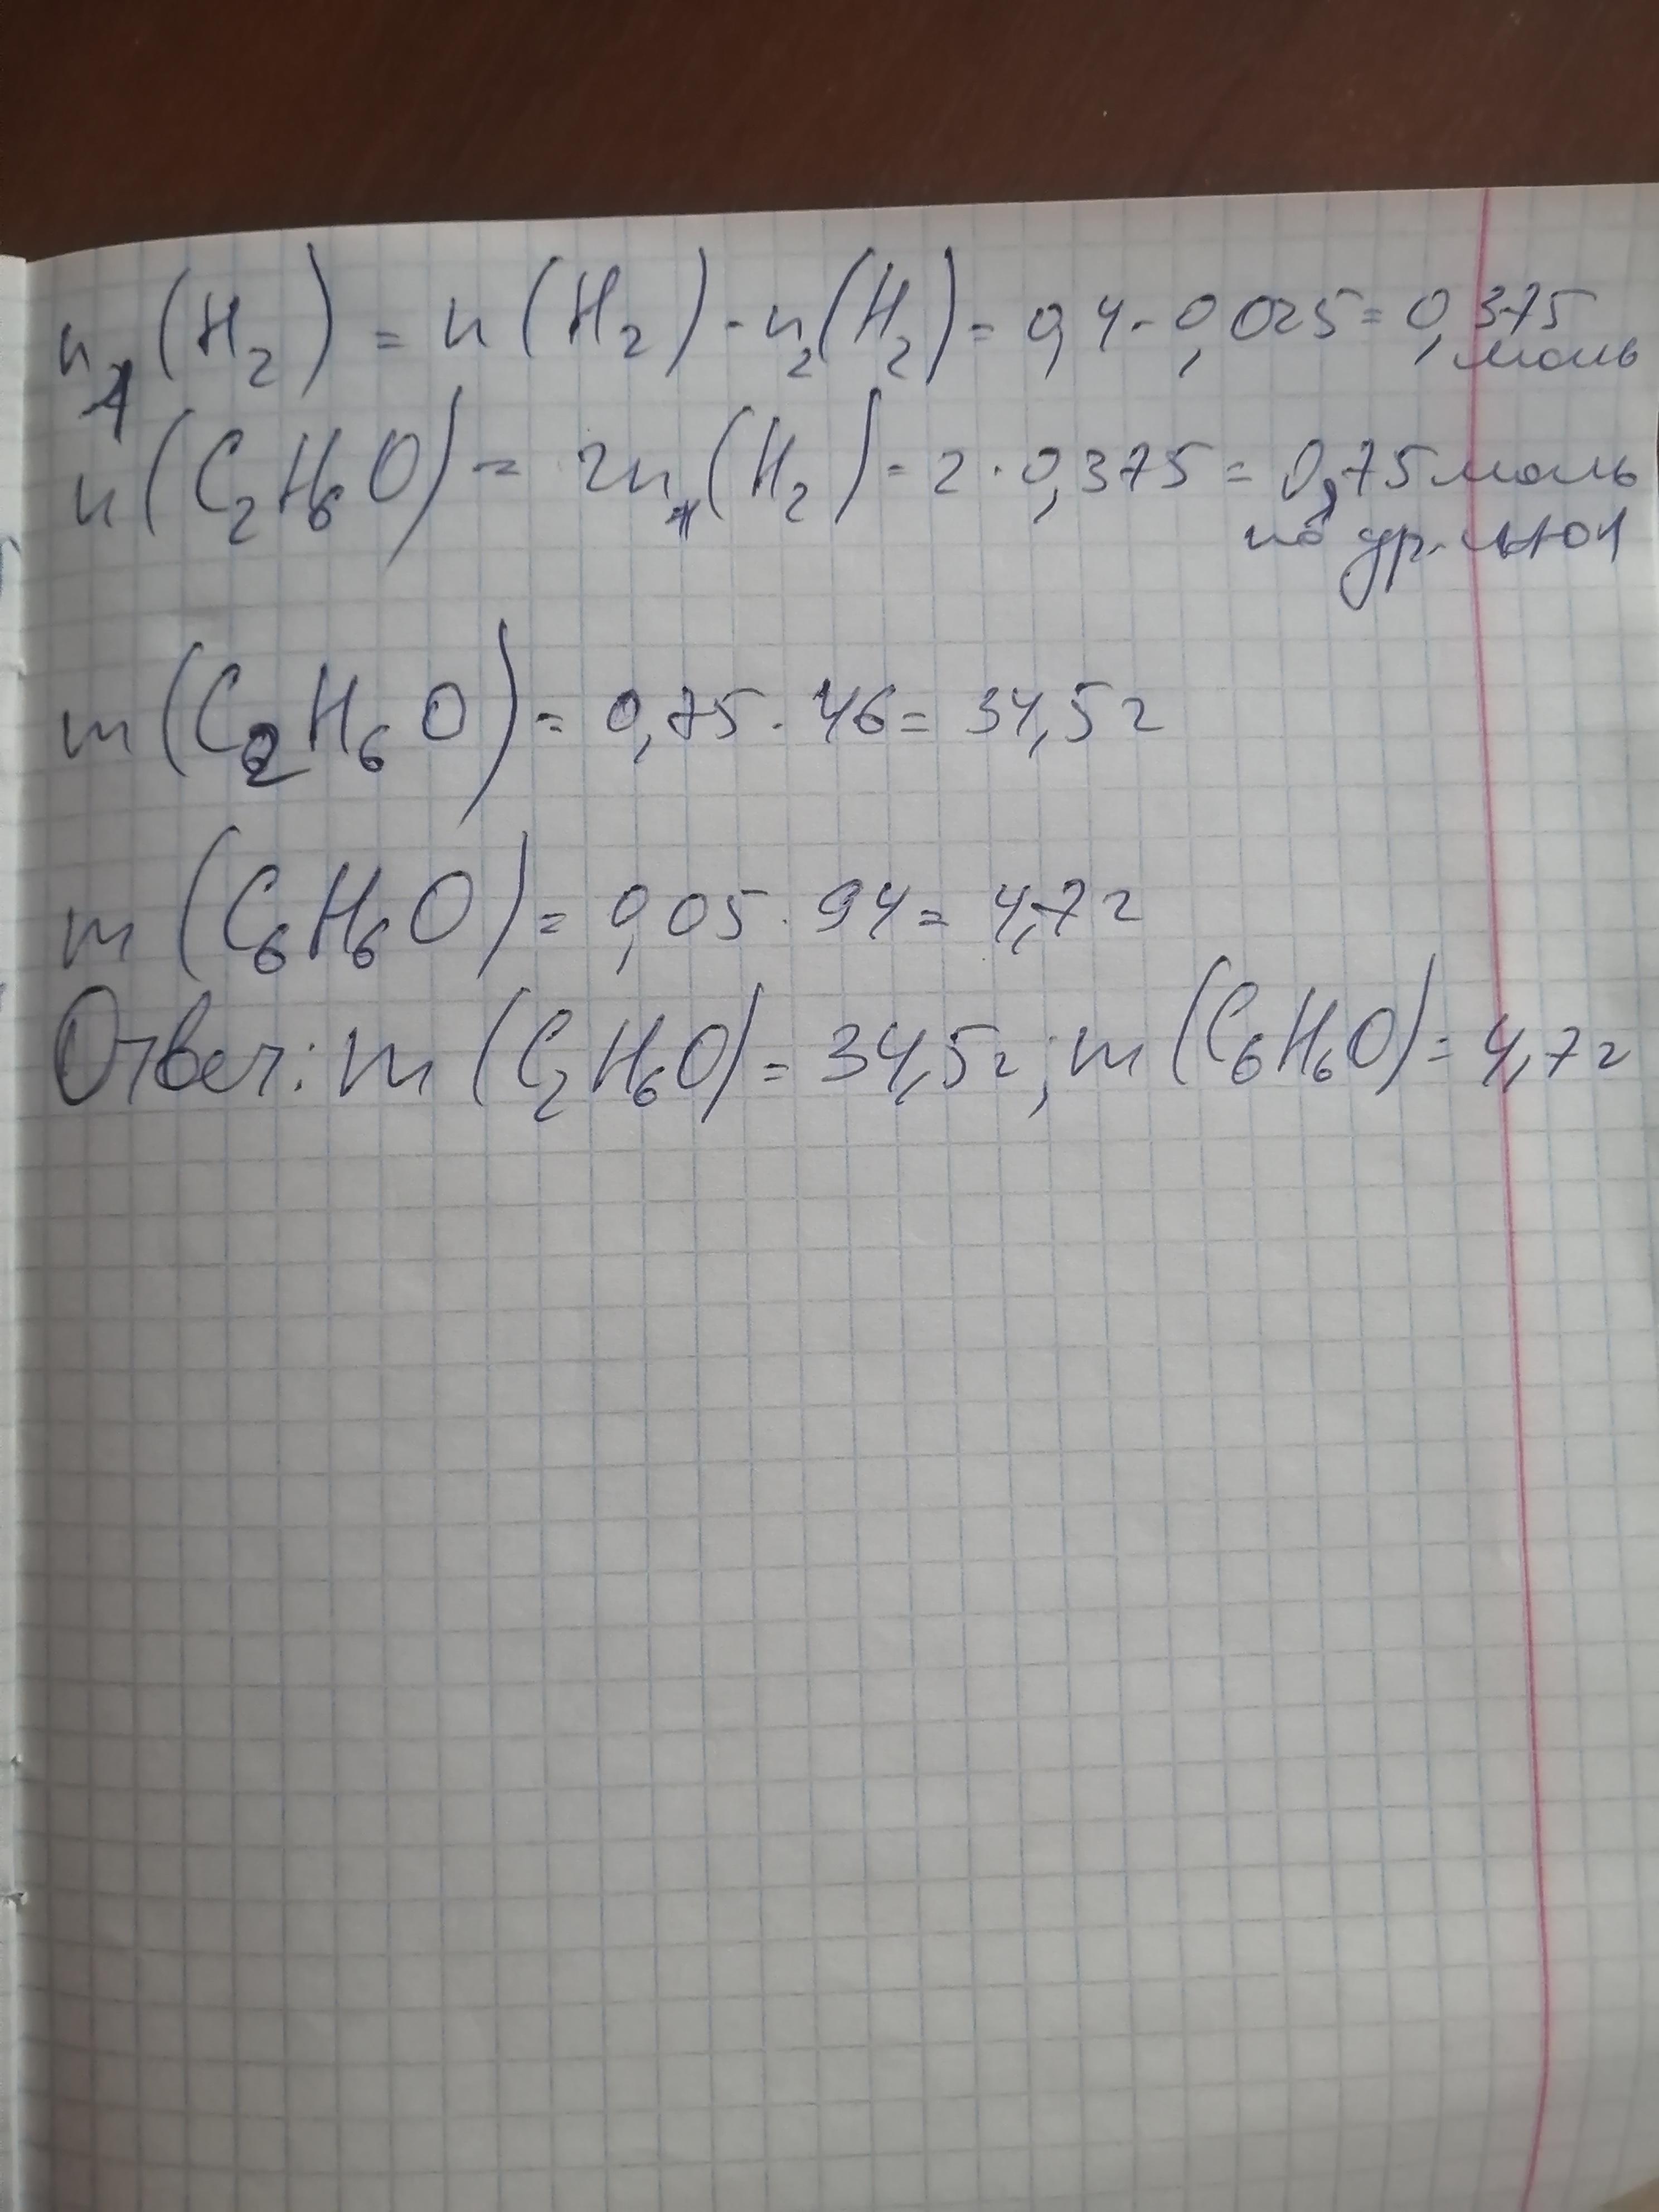 n₁(H₂) = n(H₂) - n₂(H₂) = 0,4 - 0,025 = 0,375 моль
n(C₂H₆O) = 2n₁(H₂) = 2 · 0,375 = 0,75 моль
по ур-нию 1
m(C₂H₆O) = 0,75 · 46 = 34,5 г
m(C₆H₆O) = 0,05 · 94 = 4,7 г
Ответ: m(C₂H₆O) = 34,5 г; m(C₆H₆O) = 4,7 г